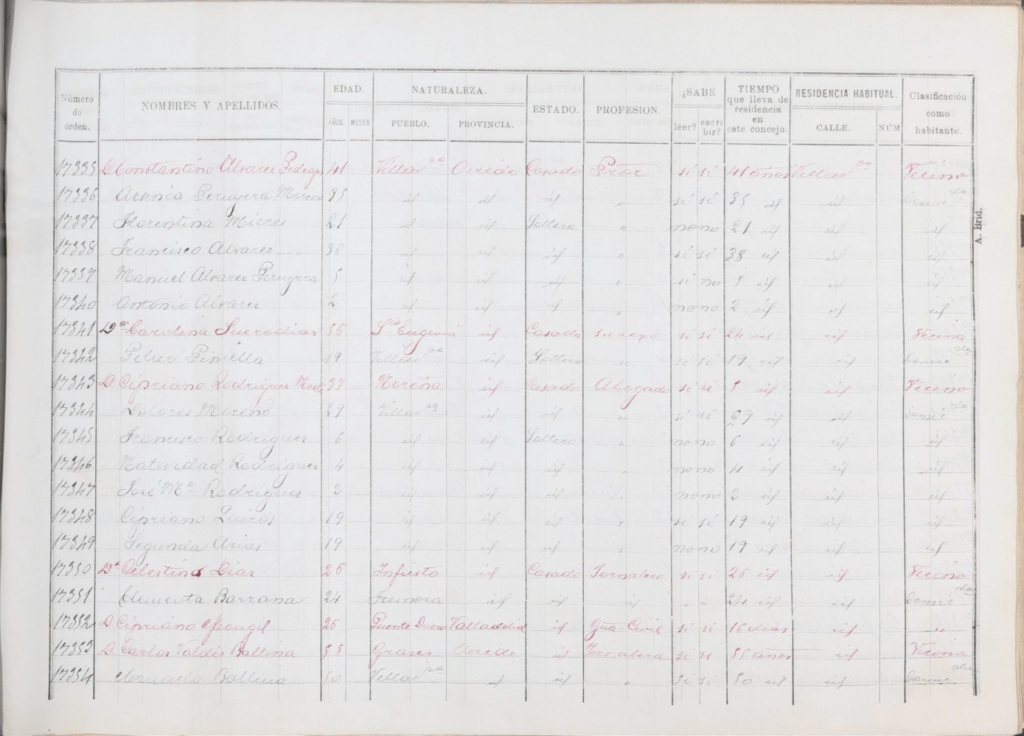 Número de orden. NOMBRES Y APELLIDOS. EDAD. AÑOS. MESES. NATURALEZA. PUEBLO. PROVINCIA. ESTADO. PROFESION. ¿SABE leer? escribir? TIEMPO que lleva de residencia en este concejo. RESIDENCIA HABITUAL. CALLE. NÚM Clasificación como habitante.
17335 D. Constantino Alvarez 41 Villavª Oviedo Casado si si 41 años Villavª Vecino
17336 Peruyera 35 id id id " si si 35 id id
17337 Florentina 21 id id Soltera " no no 21 id id id
17338 Francisco Alvarez id id id " si si 38 id id id
17339 Manuel Alvarez Peruyera 5 id id id " si no 5 id id id
17340 Antonio Alvarez 2 id id id " no no 2 id id id
17341 Dª Carolina 56 Sª Eugenia id Casado su sexo si si 24 id id Vecina
17342 Pilar 19 Villavª id Soltera " si si 19 id id
17343 D. Cipriano Rodriguez 37 Noreña id Casado Abogado si si id id Vecino
17344 Dolores Moreno 29 Villavª id id " si si 29 id id
17345 Francisco Rodriguez 6 id id Soltero " no no 6 id id id
17346 Natividad Rodriguez 4 id id id " no no 4 id id id
17347 José Mª Rodriguez 2 id id id " no no 2 id id id
17348 Cipriano Quiros 19 id id id " si si 19 id id id
17349 Segunda Arias 19 id id id " no no 19 id id id
17350 Celestino Diaz 26 Infiesto id Casado Jornalero si si 26 id id Vecino
17351 Clementa 24 id id id " " 24 id id
17352 D. Cipriano 26 Valladolid id Gª Civil si si 16 dias id "
17353 D. Carlos Valdés Ballina 55 Grases Oviedo id si si 55 años id
17354 Manuela Ballina 50 Villavª id id " si si 50 id id
A. Brid.